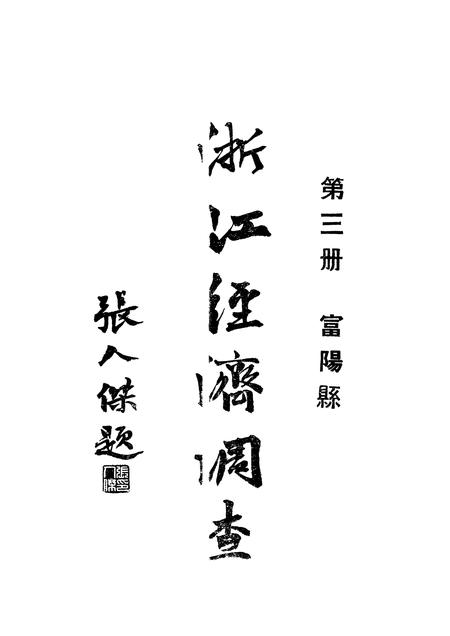 第三册 富陽縣
浙江經濟調查
張人傑題